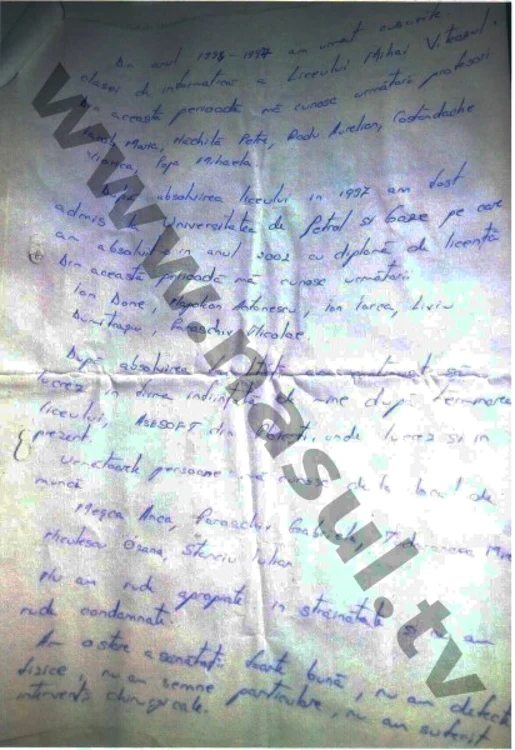 Din anul 1993-1997 am urmat cursurile
clasei de informatică a Liceului Mihai Viteazul.
Din această perioadă mă cunosc următorii profesori
Maria, Nechită Petre, Radu Aurelian, Costandache
Viorica, Popa Mihaela
După absolvirea liceului în 1997 am fost
admis la Universitatea de Petrol și Gaze pe care
am absolvit-o in anul 2002 cu diplomă de licență
Din această perioadă mă cunosc următorii
Ion Done, Napoleon Antonescu, Ion Iorea, Liviu
Dumitrașcu, Paraschiv Nicolae.
După absolvirea am să
lucrez în firma înființată de mine după terminarea
liceului, ASESOFT din Ploiești, unde lucrez și in
prezent.
Următoarele persoane mă cunosc de la locul de
muncă
Anca, Paraschiv Gabriela,
Niculescu Oxana, Stanciu Iulian
Nu am rude apropiate in străinătate și nu am
rude condamnate.
Am o stare a sănătății foarte bună, nu am defecte
fizice, nu am semne particulare, nu am suferit
intervenții chirurgicale.
www.nasul.tv